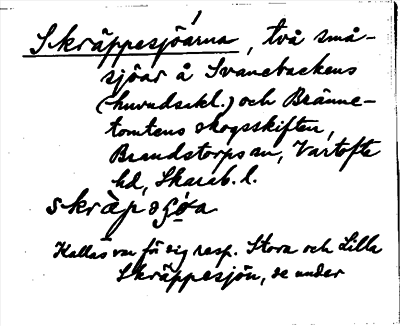 Skräppesjöarna, två små-
sjöar å Svanebackens
(huvudsakl.) och Bränne-
tomtens skogsskiften,
Brandstorps sn, Vartofta
hd, Skarab. l.
skràp
Kallas var för sig resp. Stora och Lilla
Skräppesjön, se under